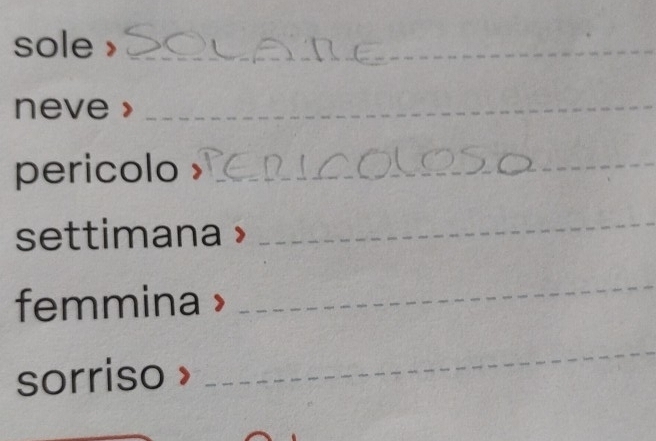 sole › SOLARE
neve ›
pericolo › PERICOLOSO
settimana ›
femmina ›
sorriso ›